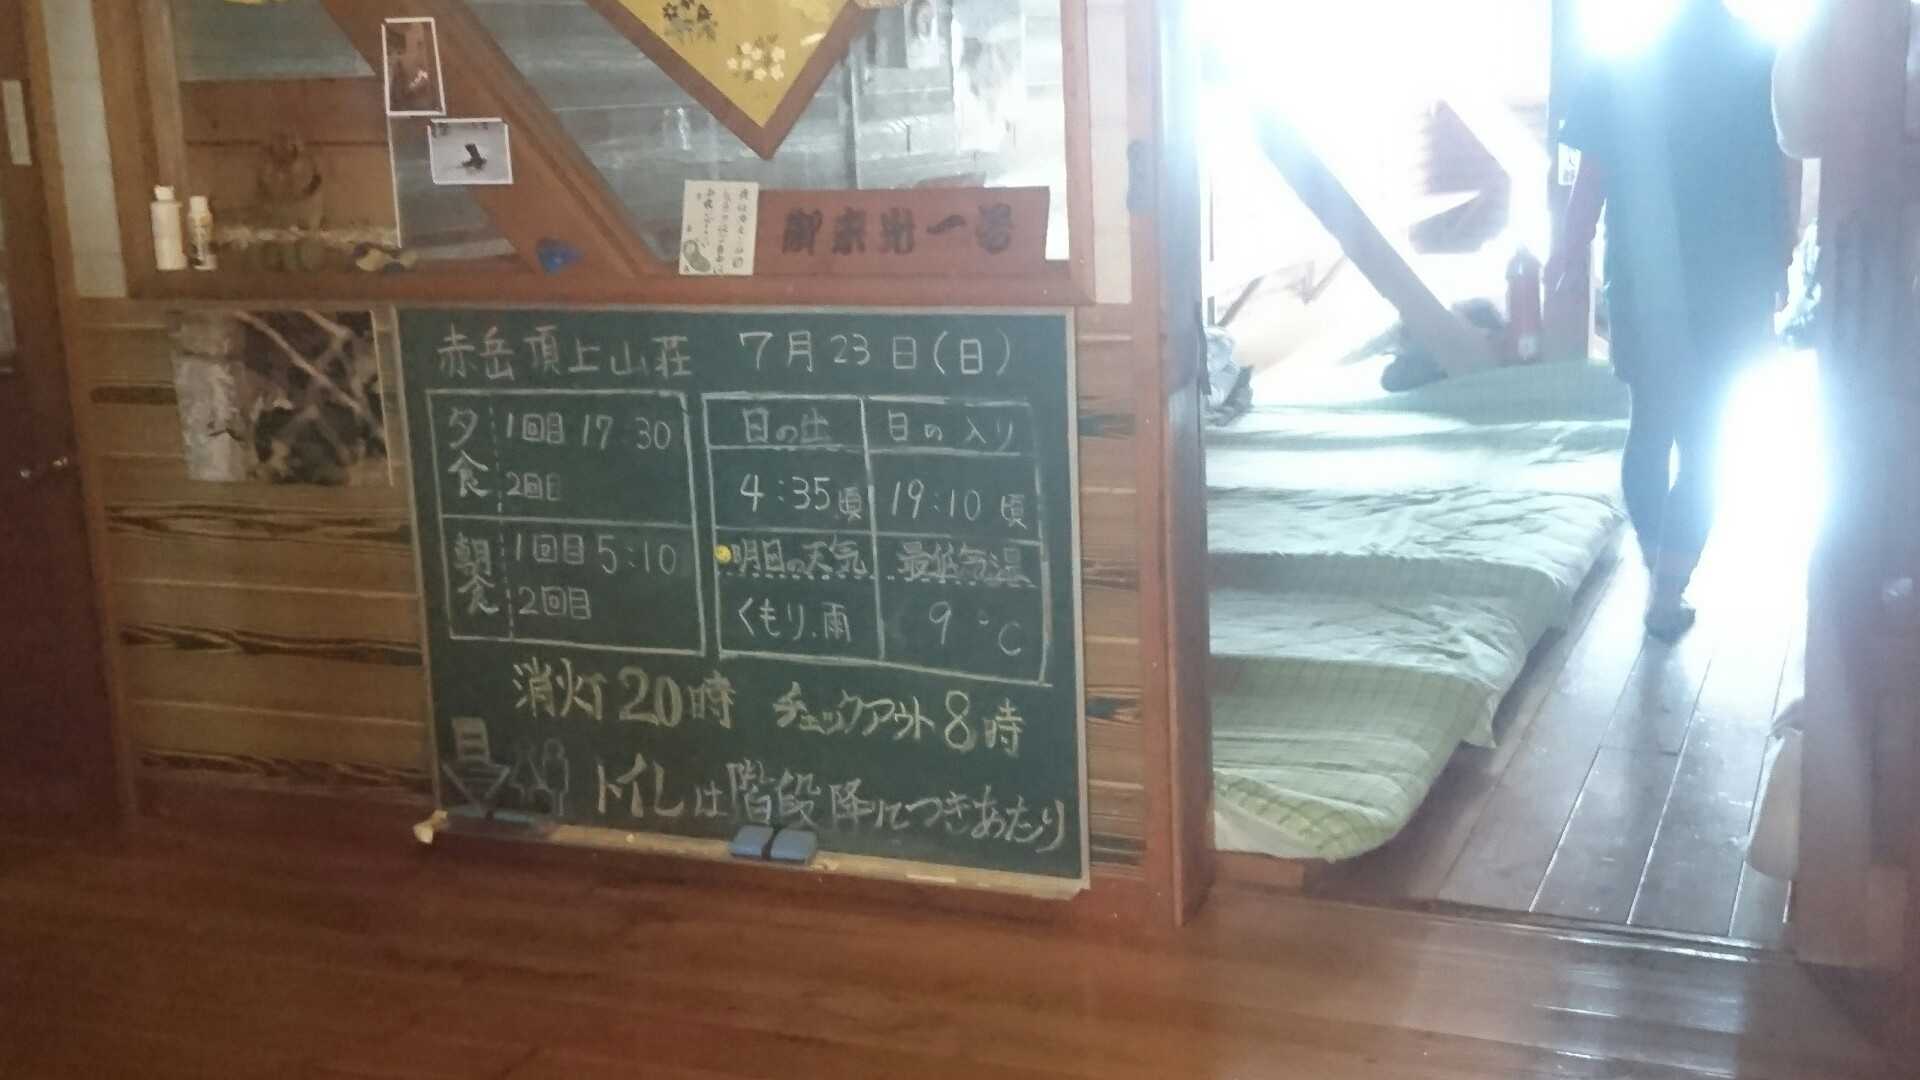 御来光一号
赤岳頂上山荘 7月23日(日)
夕食 1回目 17 30
2回目
朝食 1回目 5:10
2回目
日の出 日の入り
4:35頃 19:10頃
明日の天気 最低気温
くもり.雨 9℃
消灯20時 チェックアウト8時
トイレは階段降りてつきあたり